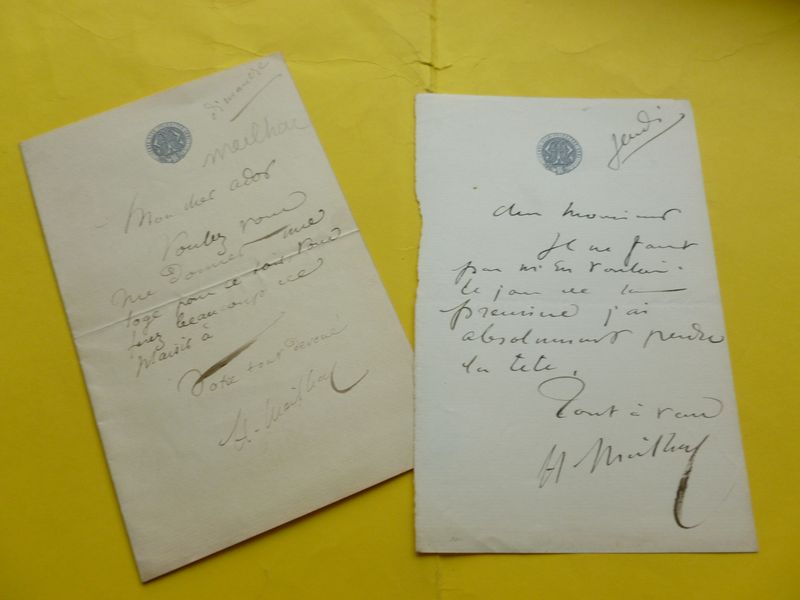 dimanche
meilhac
Mon cher ador
Voulez vous
me Donner une
loge pour ce soir vous
ferez beaucoup de
plaisir à
Votre tout dévoué
H. Meilhac
jeudi
cher monsieur
Il ne faut
pas m'en vouloir.
le jour de la
première j'ai
absolument perdu
la tête.
Tout à vous
H Meilhac